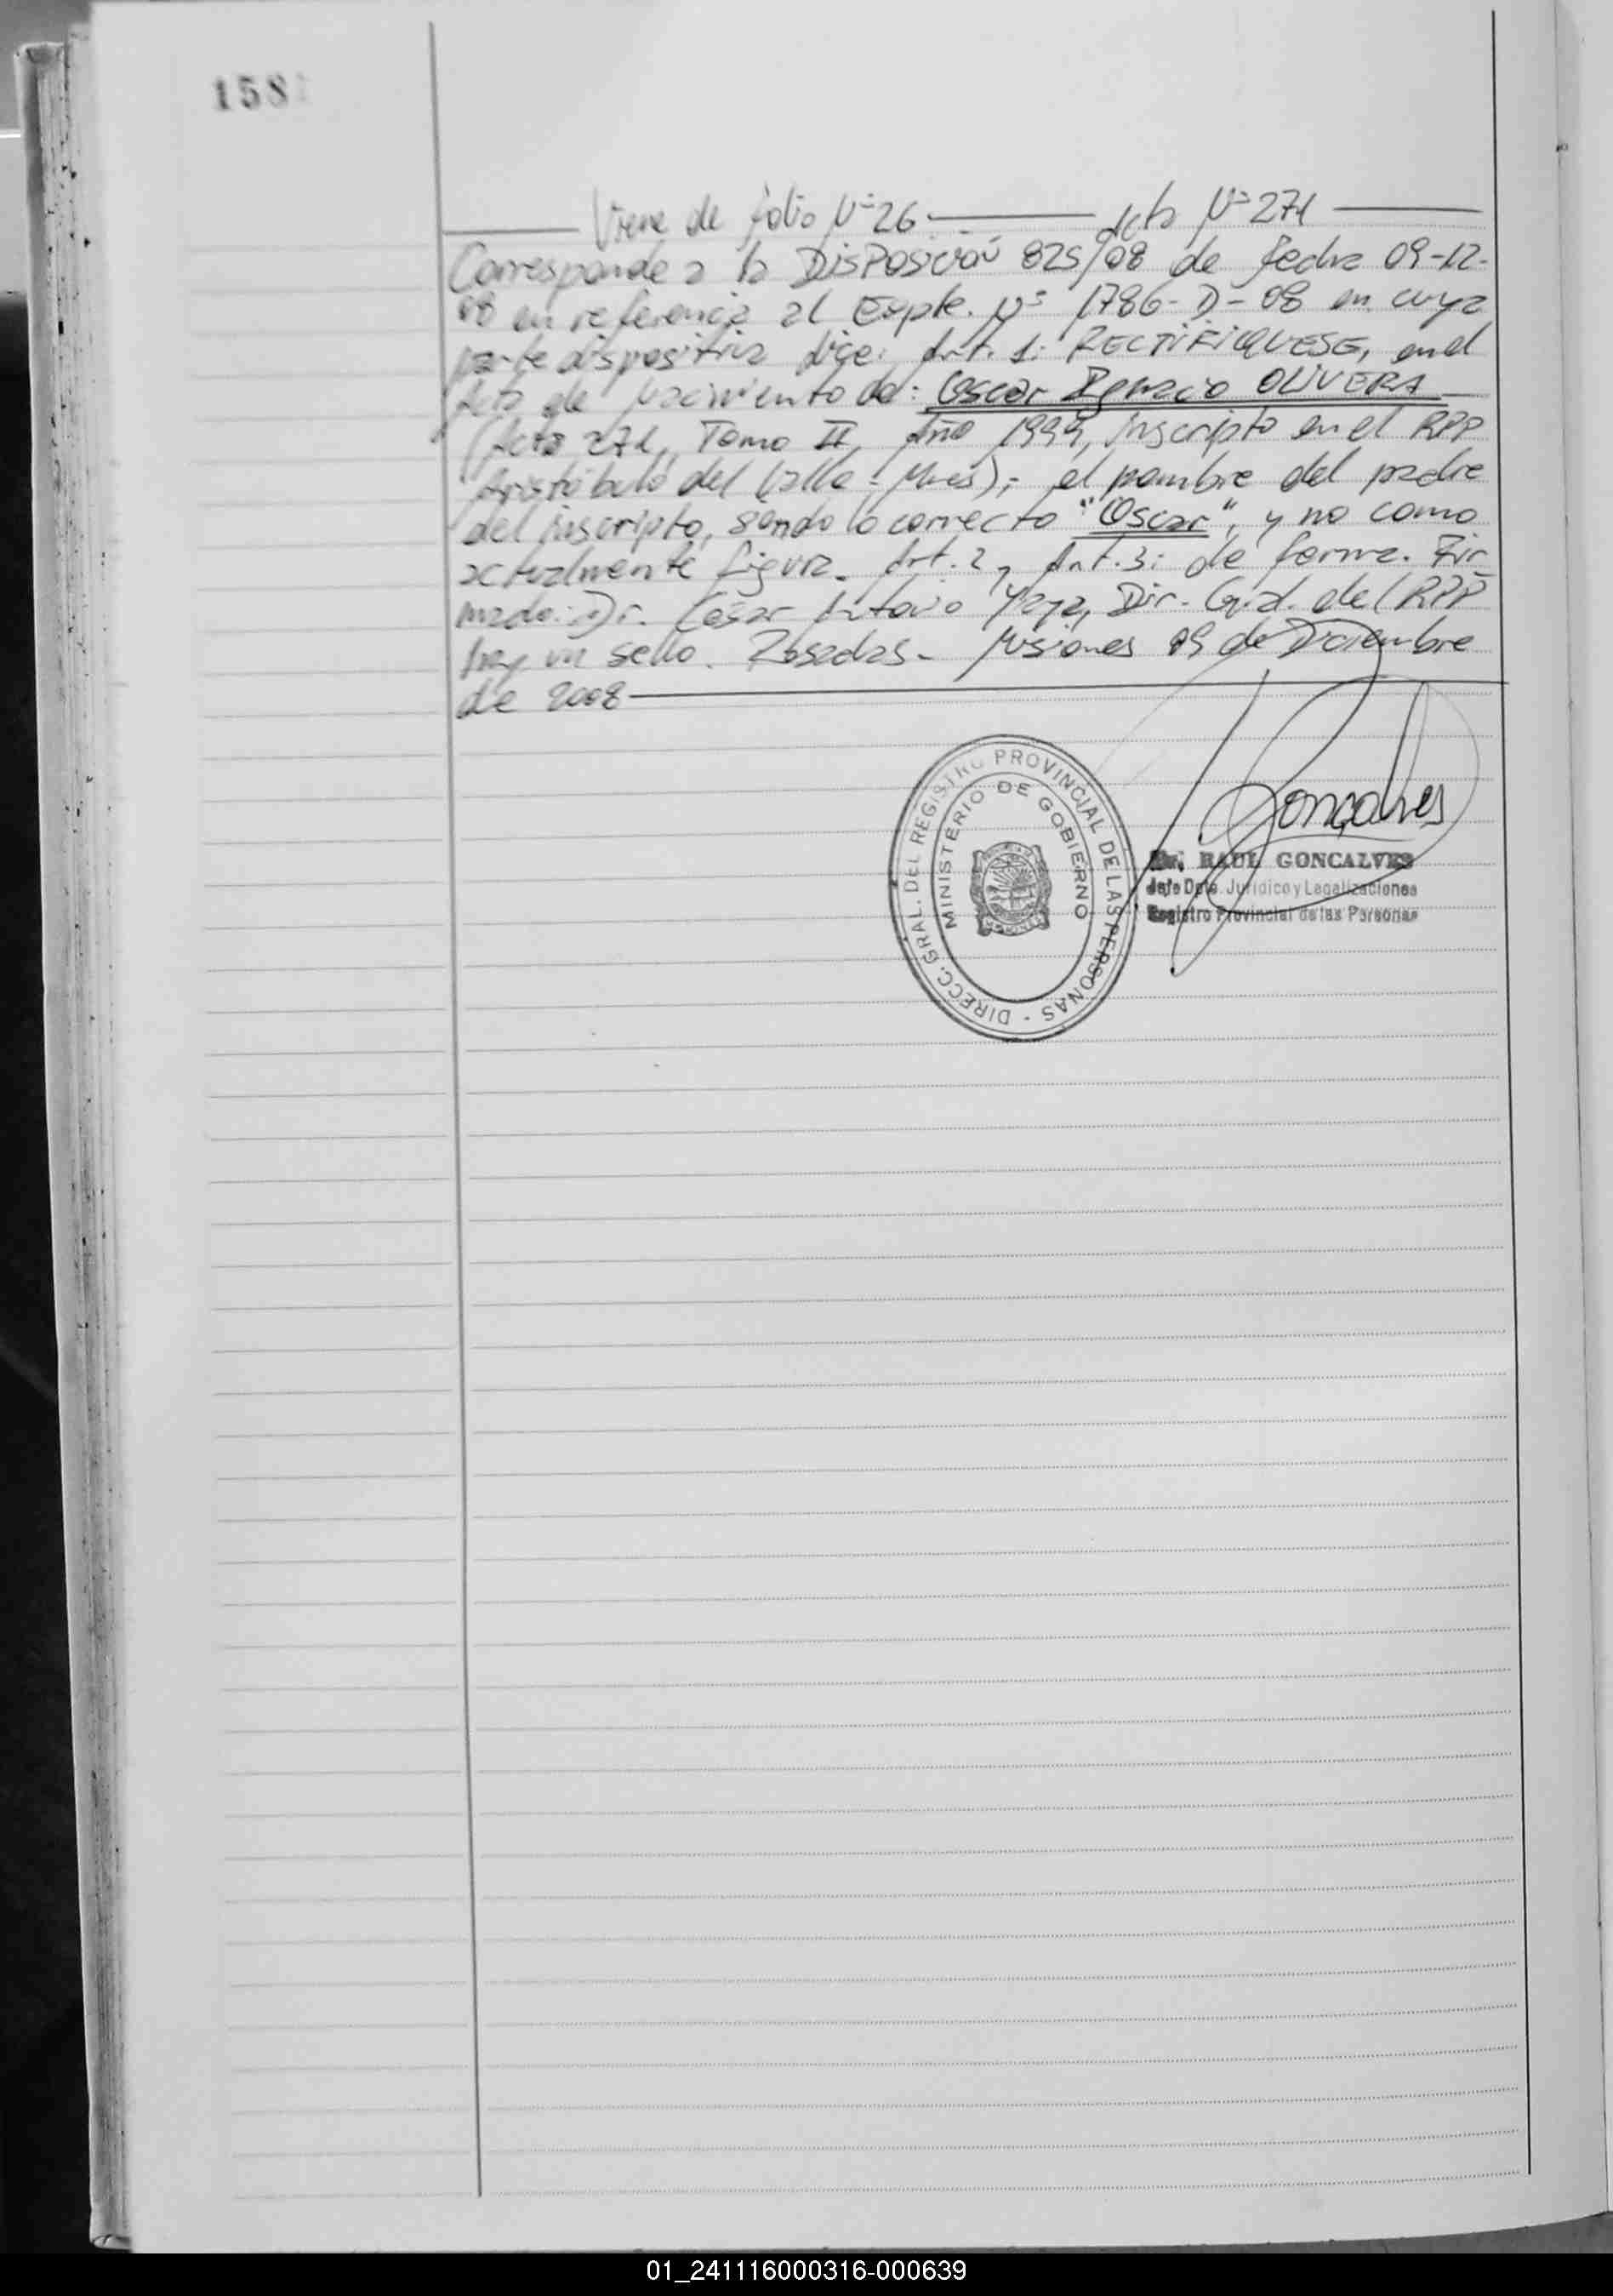 158
Viene de folio Nº 26. Acta Nº 271
Corresponde a la DISPOSICIÓN 825/08 de fecha 09-12-
08 en referencia al Expte. Nº 1786-D-08 en cuya
parte dispositiva dice: Art. 1: RECTIFIQUESE, en el
Acta de Nacimiento de: Oscar Ignacio OLIVERA
(Acta 271, Tomo II, Año 1994, inscripto en el RPP
Aristóbulo del Valle - Mnes); el nombre del padre
del inscripto, siendo lo correcto "Oscar", y no como
actualmente figura. Art. 2 y Art. 3: de forma. Fir-
mado: Dr. César Antonio Yaya, Dir. Gral. del RPP
hay un sello. Posadas - Misiones 09 de Diciembre
de 2008
DIRECC. GRAL. DEL REGISTRO PROVINCIAL DE LAS PERSONAS -
MINISTERIO DE GOBIERNO
Goncalves
Dr. RAUL GONCALVES
Jefe Dpto. Jurídico y Legalizaciones
Registro Provincial de las Personas
01_241116000316-000639